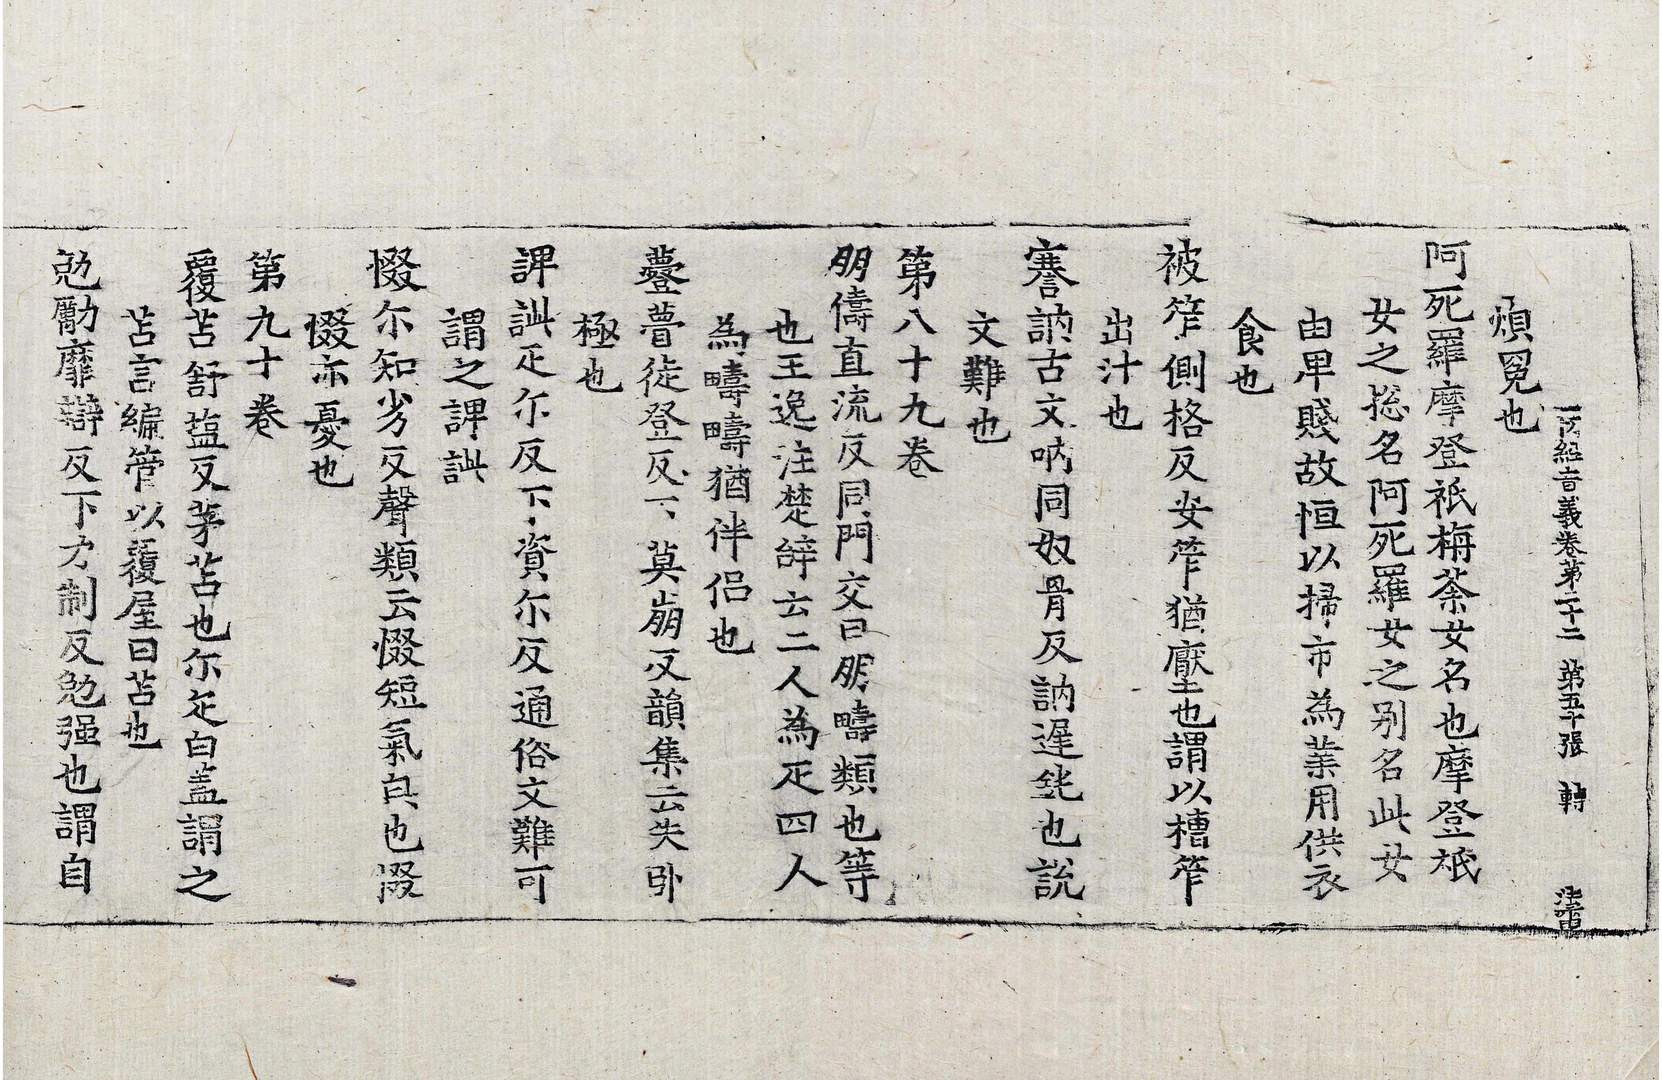 煩冤也
一切經音義卷第二十二 第五十張 轉
阿死羅摩登祇栴荼女名也摩登祇
女之捴名阿死羅女之别名此女
由卑賤故恒以掃市為業用供衣
食也
被笮側格反安笮猶壓也謂以槽笮
出汁也
謇訥古文呐同奴骨反訥遲鈍也說
文難也
第八十九卷
朋儔直流反同門交曰朋疇類也等
也王逸注楚辞云二人為疋四人
為疇疇猶伴侣也
薹瞢徒登反下莫崩反韻集云失卧
極也
諀訿疋尔反下資尔反通俗文難可
謂之諀訿
惙尔知劣反聲類云惙短氣皃也惙
惙亦憂也
第九十卷
覆苫舒塩反茅苫也尔疋白盖謂之
苫言編菅以覆屋曰苫也
勉勵靡辯反下力制反勉强也謂自